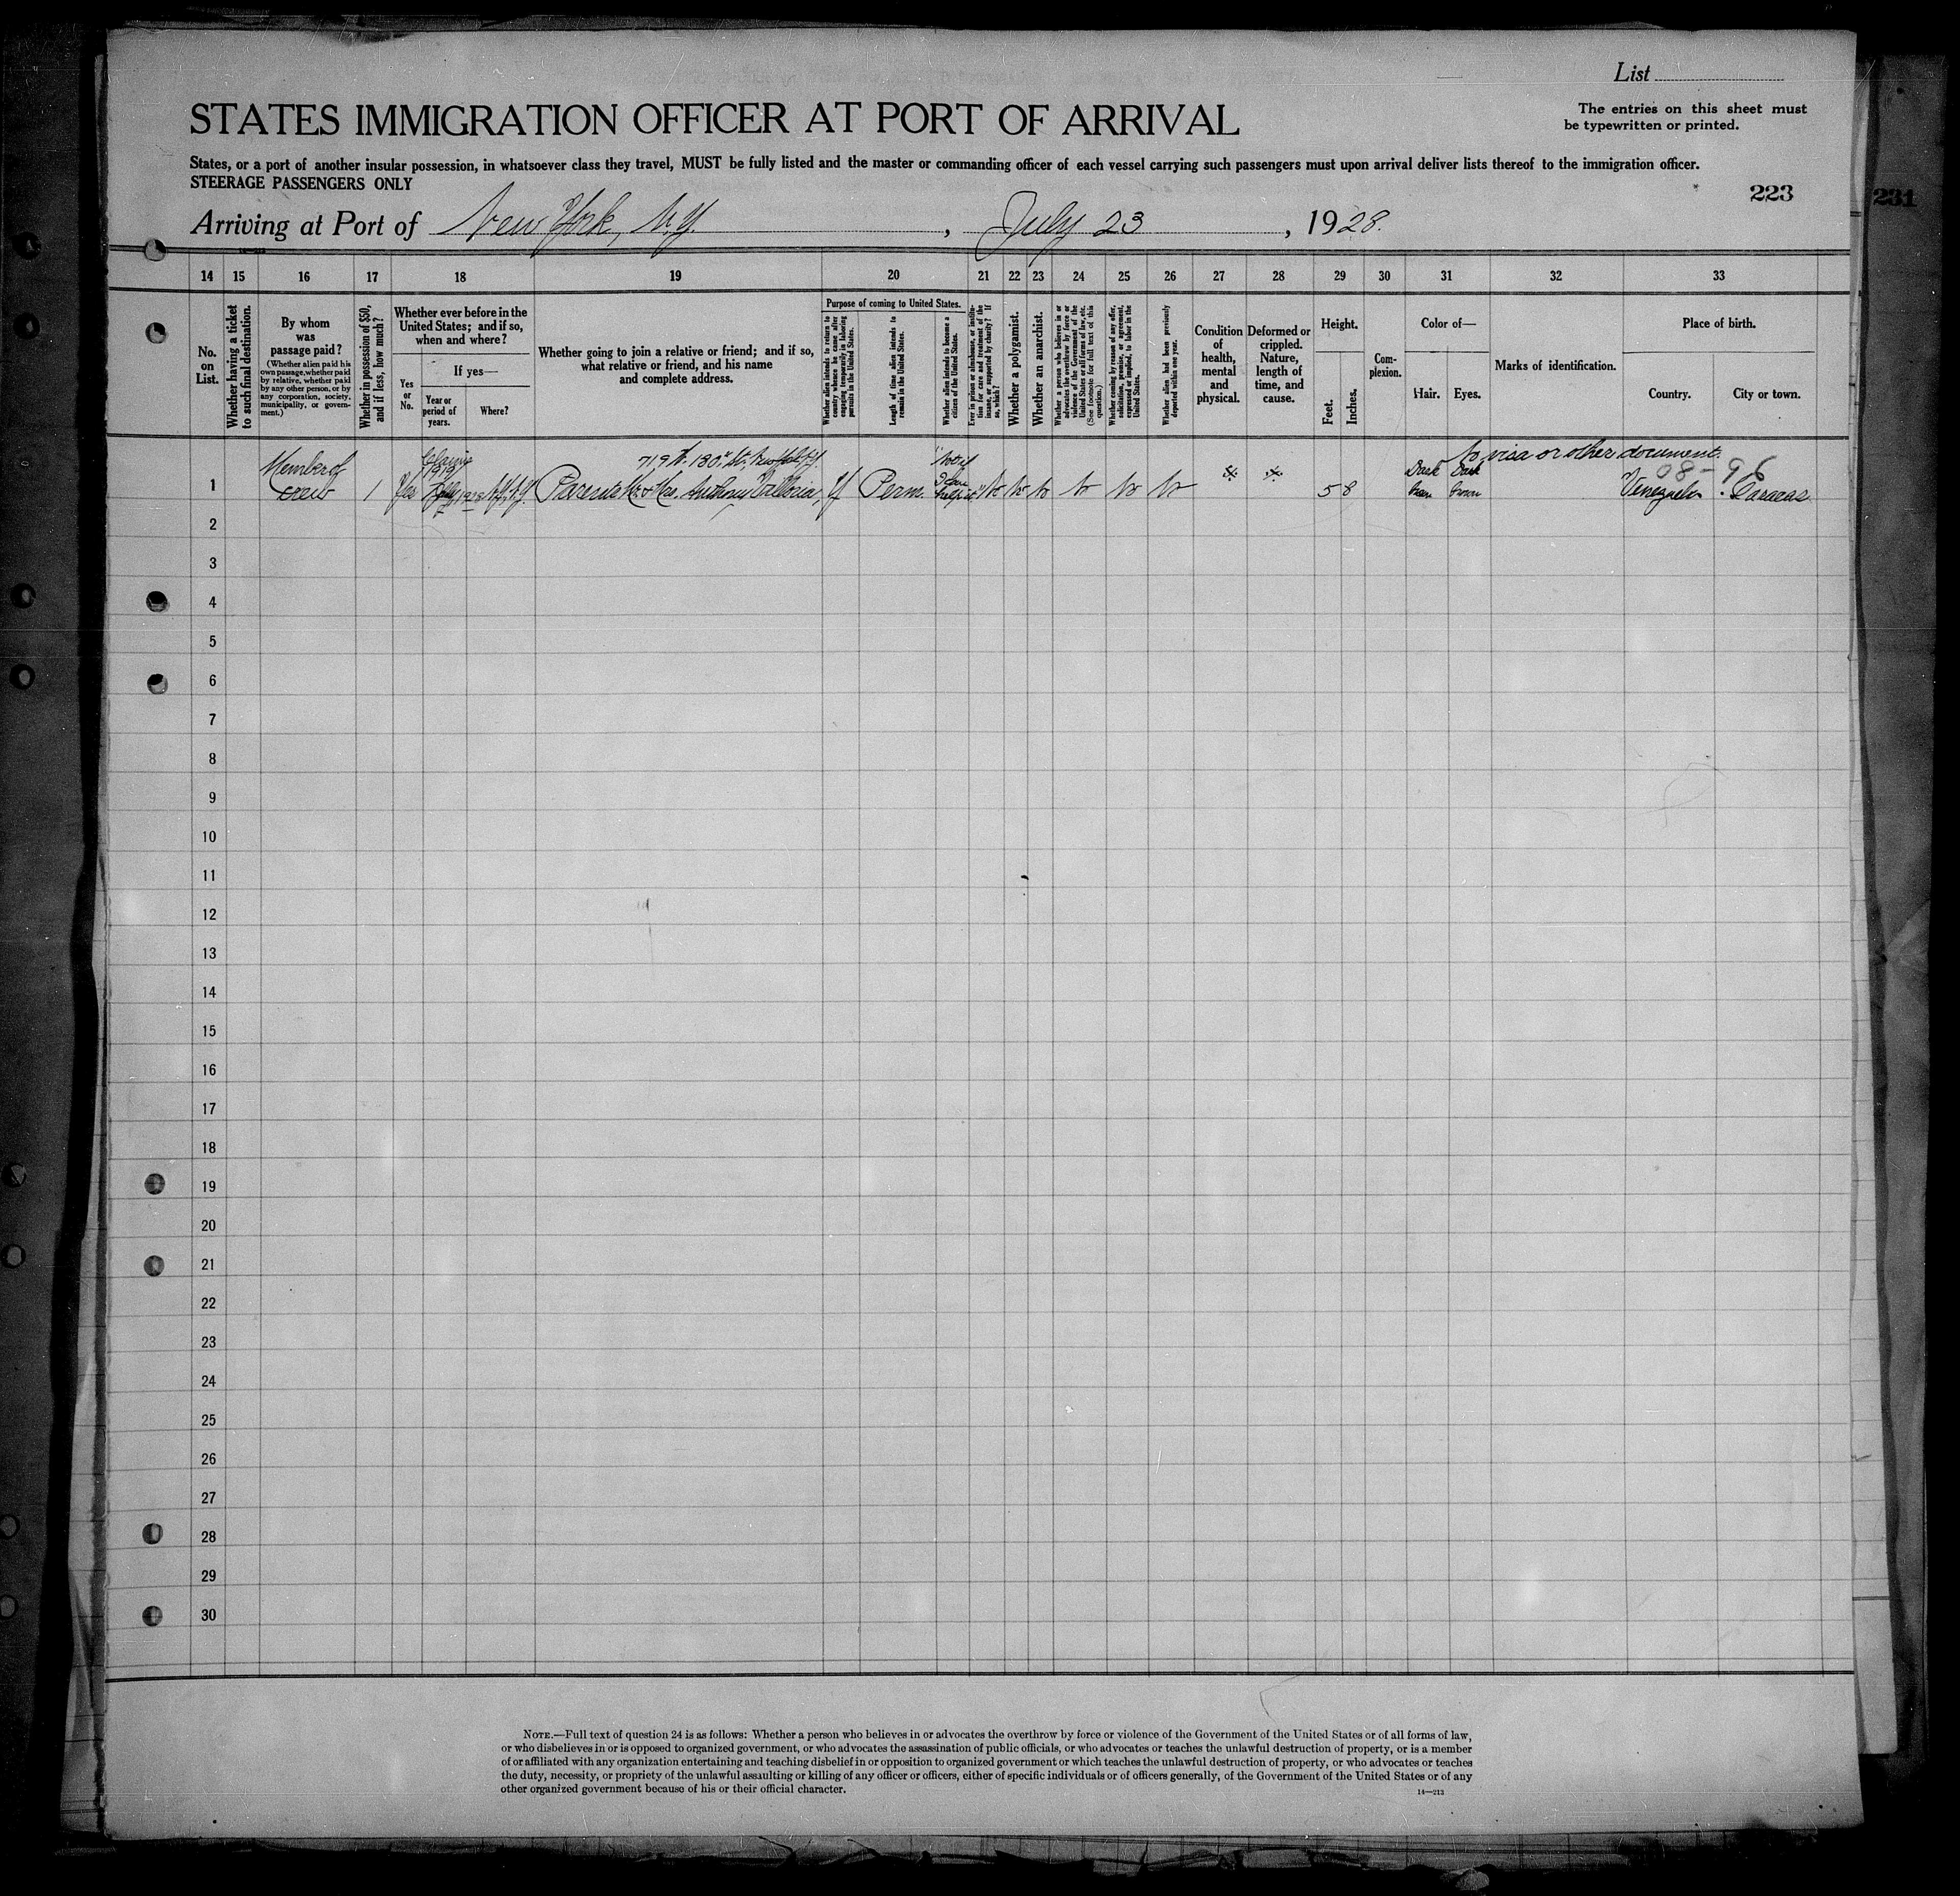 List
STATES IMMIGRATION OFFICER AT PORT OF ARRIVAL
The entries on this sheet must
be typewritten or printed.
States, or a port of another insular possession, in whatsoever class they travel, MUST be fully listed and the master or commanding officer of each vessel carrying such passengers must upon arrival deliver lists thereof to the immigration officer.
STEERAGE PASSENGERS ONLY
223
231
Arriving at Port of New York, N.Y. , July 23 , 1928.
14 15 16 17 18 19 20 21 22 23 24 25 26 27 28 29 30 31 32 33
No. on List.
Whether having a ticket to such final destination.
By whom was passage paid?
(Whether alien paid his own passage, whether paid by relative, whether paid by any other person, or by any corporation, society, municipality, or government.)
Whether in possession of $50, and if less, how much?
Whether ever before in the United States; and if so, when and where?
Yes or No.
If yes—
Year or period of years.
Where?
Whether going to join a relative or friend; and if so, what relative or friend, and his name and complete address.
Purpose of coming to United States.
Whether alien intends to return to country whence he came after engaging temporarily in laboring pursuits in the United States.
Length of time alien intends to remain in the United States.
Whether alien intends to become a citizen of the United States.
Ever in prison or almshouse, or institution for care and treatment of the insane, or supported by charity? If so, which?
Whether a polygamist.
Whether an anarchist.
Whether a person who believes in or advocates the overthrow by force or violence of the Government of the United States or all forms of law, etc. (See footnote for full text of this question.)
Whether coming by reason of any offer, solicitation, promise, or agreement, expressed or implied, to labor in the United States.
Whether alien had been previously deported within one year.
Condition of health, mental and physical.
Deformed or crippled. Nature, length of time, and cause.
Height.
Feet.
Inches.
Complexion.
Color of—
Hair.
Eyes.
Marks of identification.
Place of birth.
Country.
City or town.
719 W. 180" St., New York, N.Y.
No visa or other document.
08-96
1 Member of crew 1 Yes 1928 N.Y. N.Y. Parents Mr. & Mrs. Anthony Perm. No No No No No No 5 8 Dark brown Dark brown Venezuela Caracas
2
3
4
5
6
7
8
9
10
11
12
13
14
15
16
17
18
19
20
21
22
23
24
25
26
27
28
29
30
NOTE.—Full text of question 24 is as follows: Whether a person who believes in or advocates the overthrow by force or violence of the Government of the United States or of all forms of law,
or who disbelieves in or is opposed to organized government, or who advocates the assassination of public officials, or who advocates or teaches the unlawful destruction of property, or is a member
of or affiliated with any organization entertaining and teaching disbelief in or opposition to organized government or which teaches the unlawful destruction of property, or who advocates or teaches
the duty, necessity, or propriety of the unlawful assaulting or killing of any officer or officers, either of specific individuals or of officers generally, of the Government of the United States or of any
other organized government because of his or their official character.
14—213